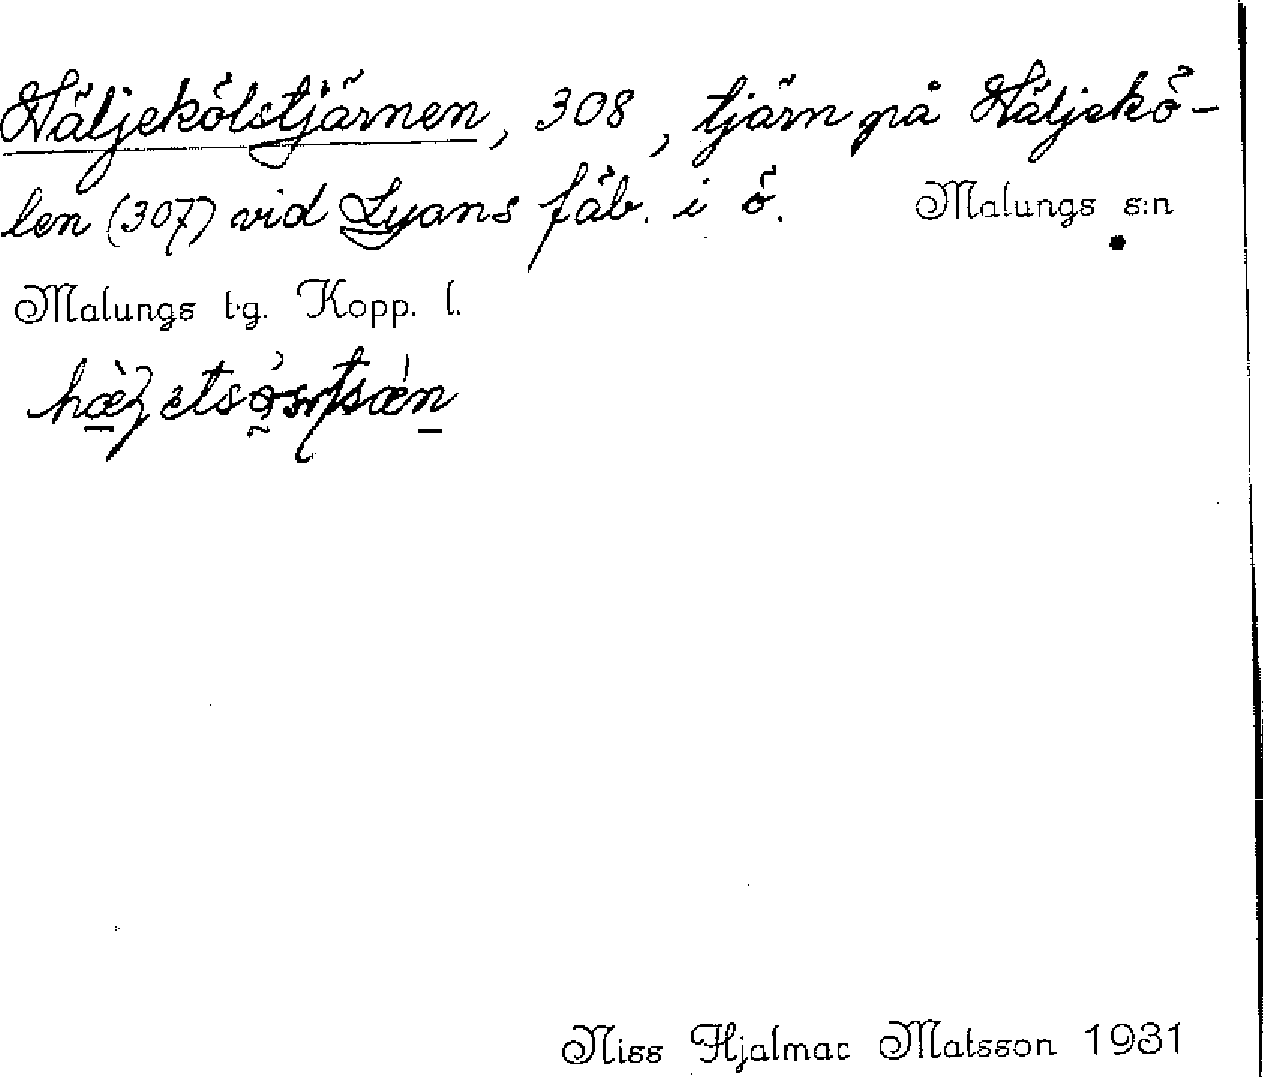 Häljekölstjärnen, 308, tjärn på Häljekö-
len (307) vid Lyans fäb. i ö.
Malungs s:n
Malungs tg. Kopp. l.
Niss Hjalmar Matsson 1931